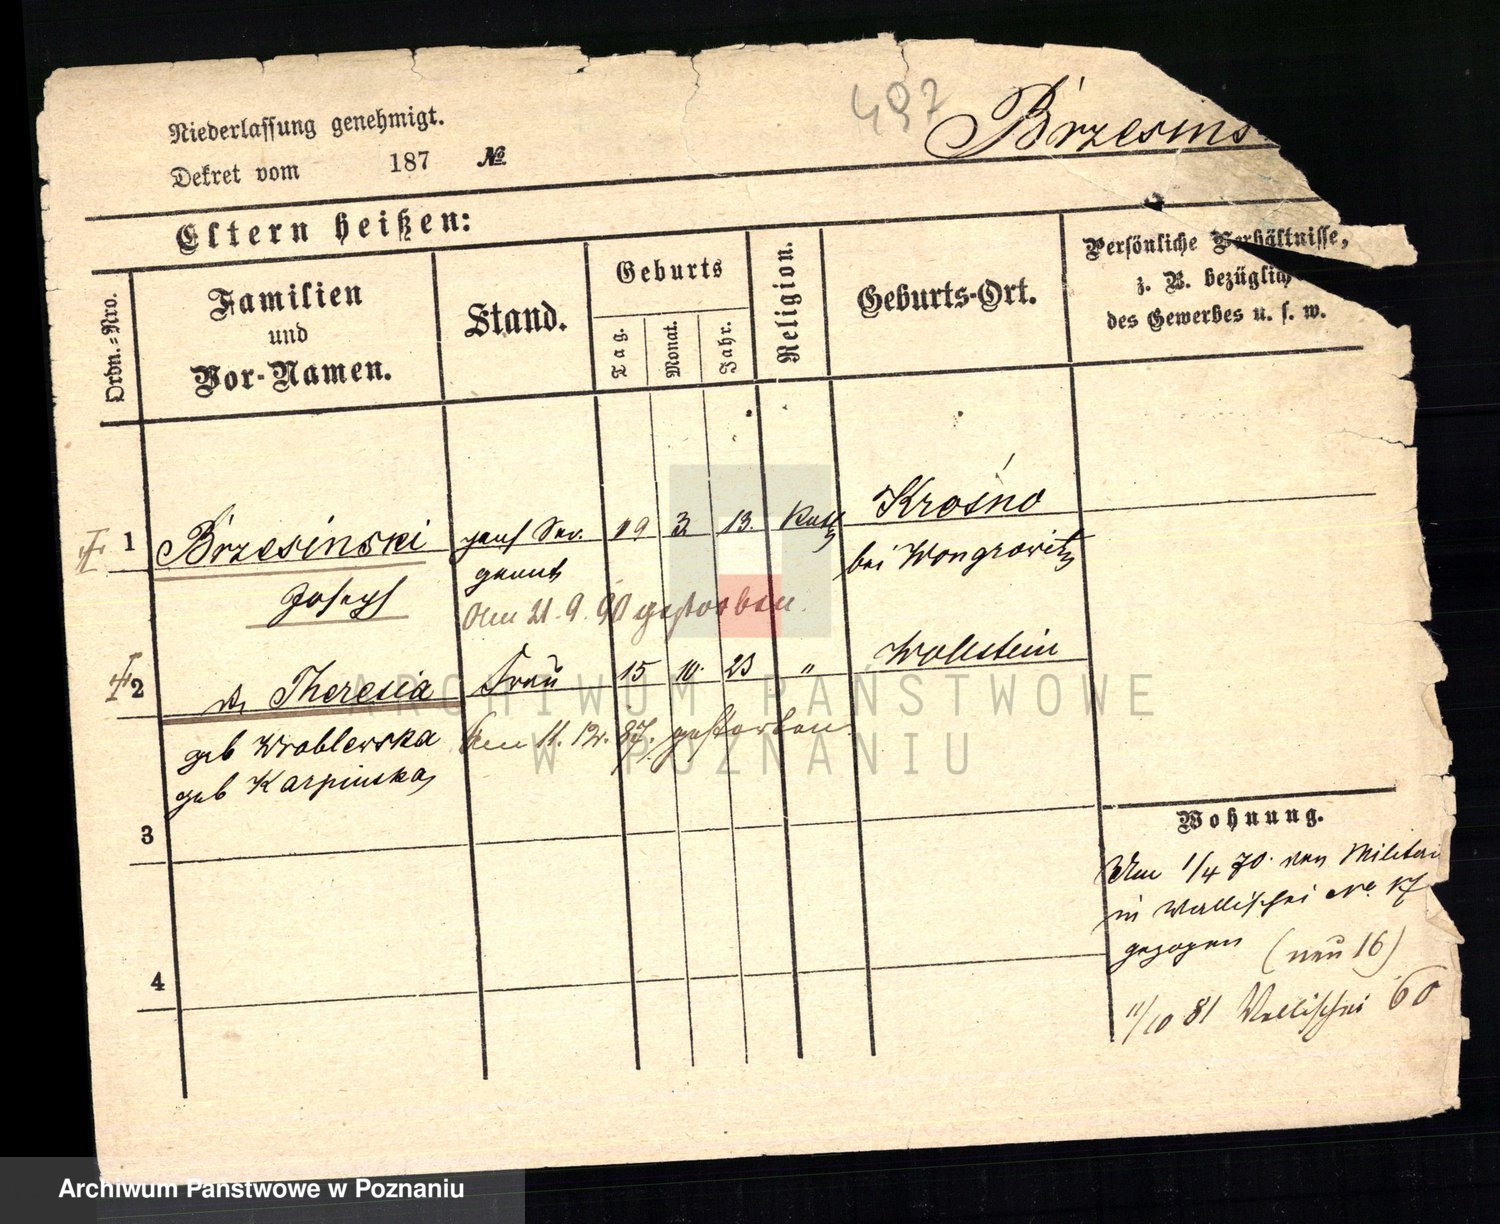 Niederlassung genehmigt.
Dekret vom 187 №
497
Brzesins
Eltern heißen:
Ordn.-Nro.
Familien
und
Vor-Namen.
Stand.
Geburts
Tag.
Monat.
Jahr.
Religion.
Geburts-Ort.
Persönliche Verhältnisse,
z. B. bezüglich
des Gewerbes u. s. w.
1 Brzesinski 19 3. 13. Kath Krośno
bei Wongrowitz
Joseph
Am 21. 9. 90 gestorben.
2 Theresia Frau 15 10. 23 " Wollstein
geb Wroblewska
Am 11. 12. 87. gestorben.
geb Karpinska
3
Wohnung.
Am 1/4 70. von Militair
in Wallischei No 17
gezogen (neu 16)
4
11/10 81 Wallischei 60
ARCHIWUM PAŃSTWOWE
W POZNANIU
Archiwum Państwowe w Poznaniu